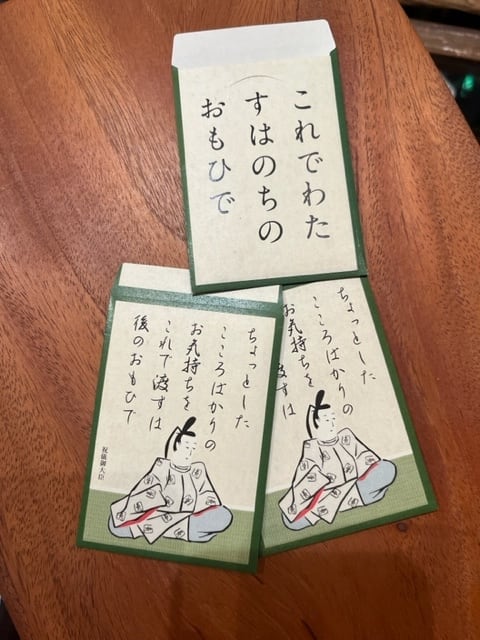 これでわた
すはのちの
おもひで
ちょっとした
こころばかりの
お気持ちを
これで渡すは
後のおもひで
祝儀御大臣
ちょっとした
こころばかりの
お気持ちを
渡すは